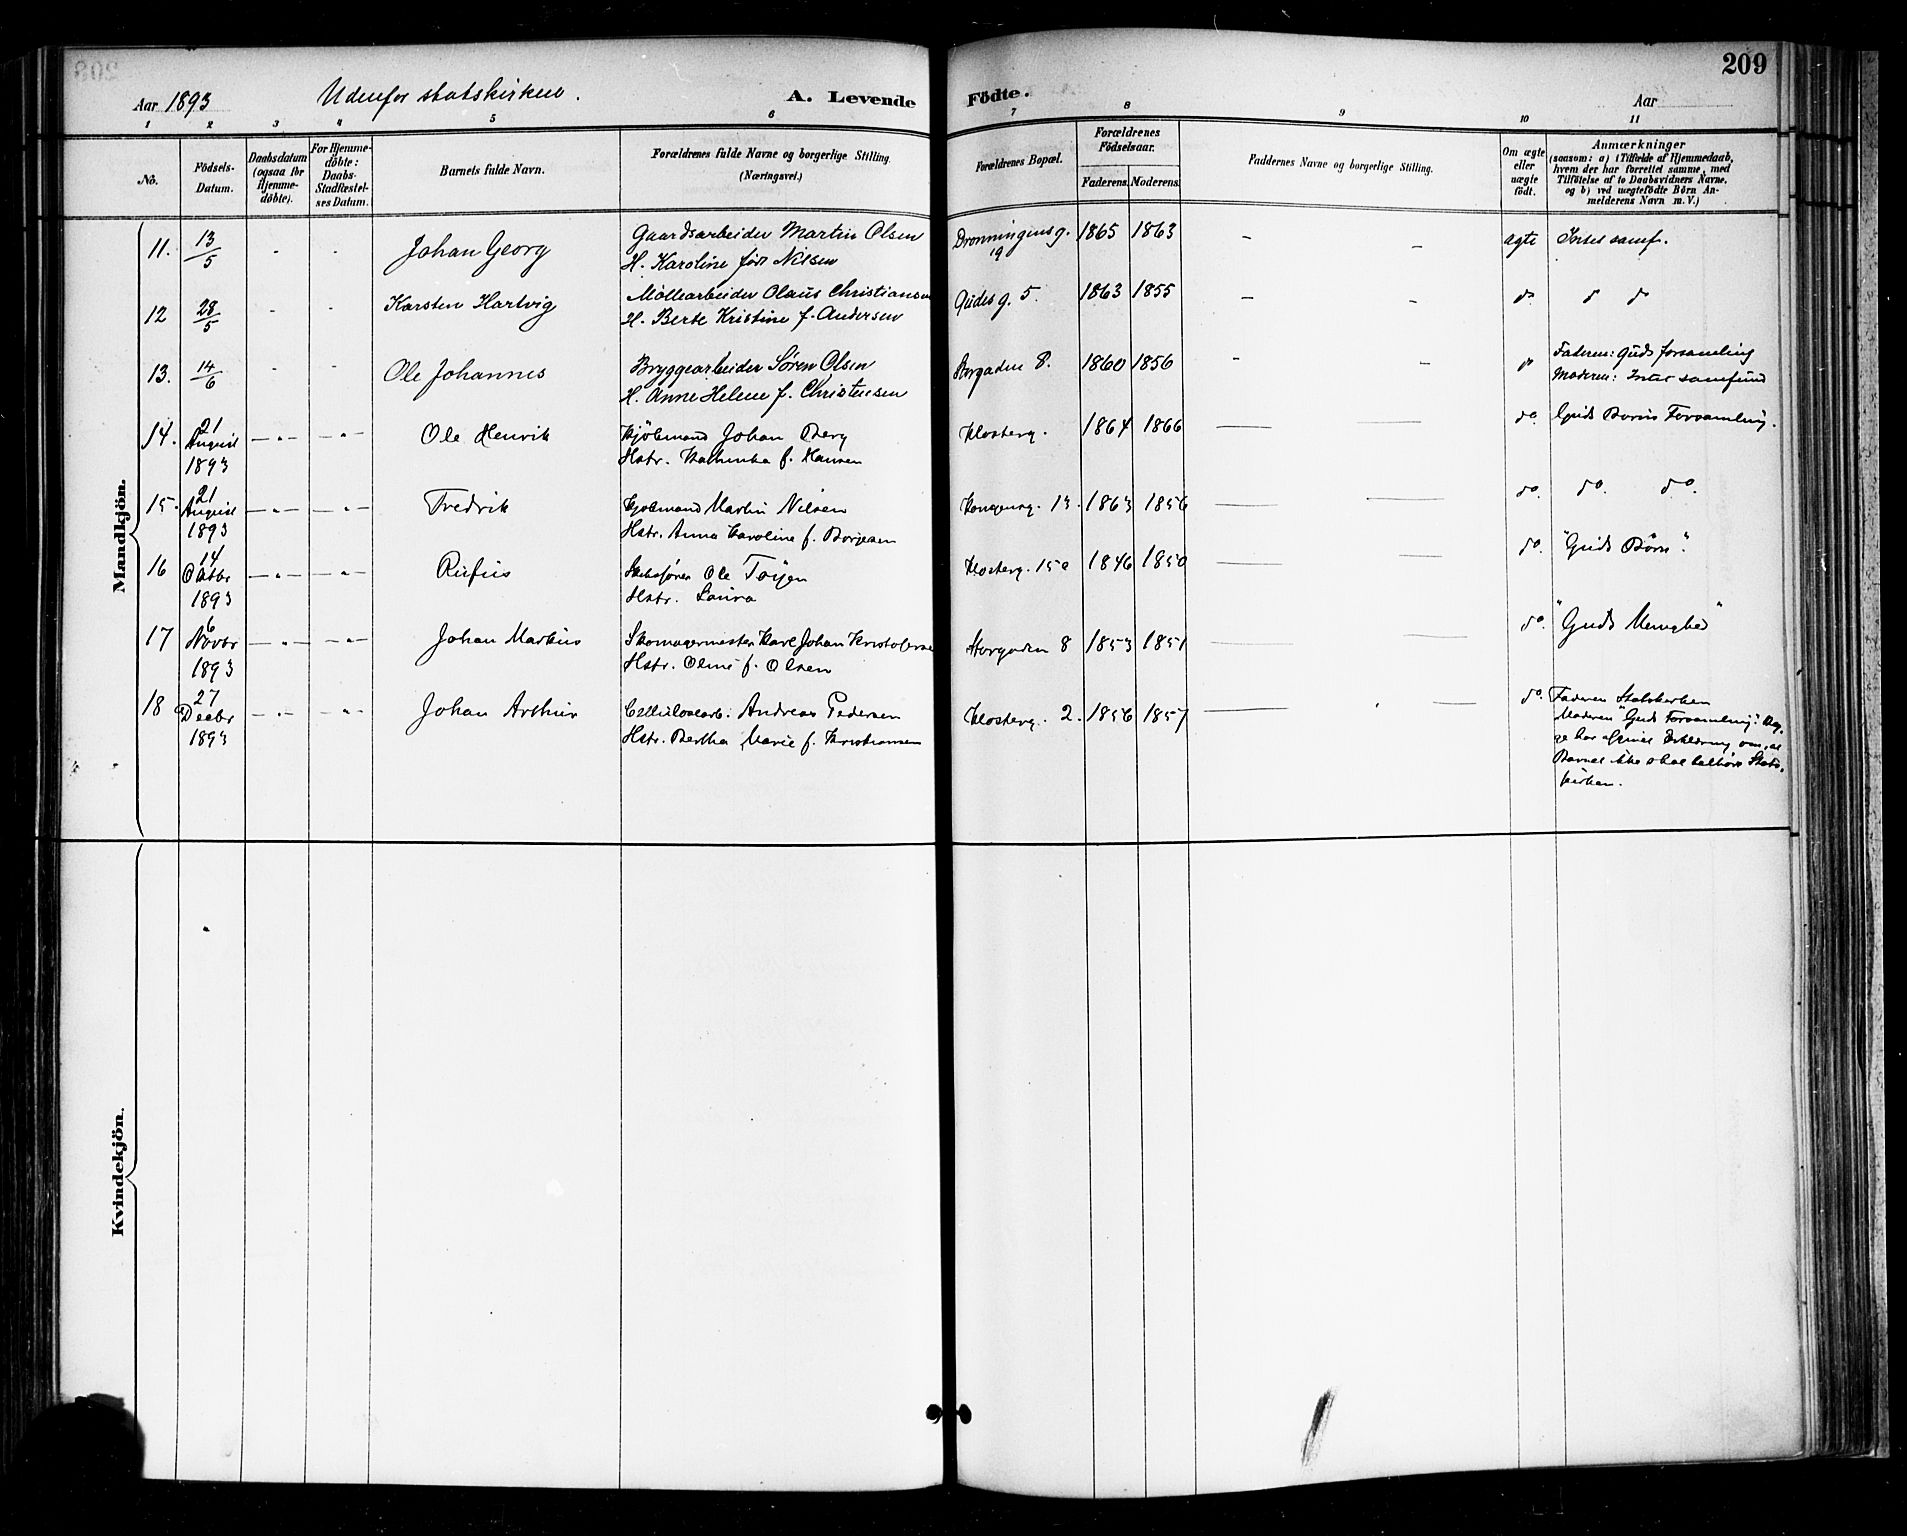 209
Aar 1893 Udenfor statskirken. A. Levende Födte. Aar
1 2 3 4 5 6 7 8 9 10 11
No. Födsels-Datum. Daabsdatum (ogsaa for Hjemme-döbte). For Hjemme-döbte: Daabs-Stadfæstel-ses Datum. Barnets fulde Navn. Forældrenes fulde Navne og borgerlige Stilling. (Næringsvei.) Forældrenes Bopæl. Forældrenes Födselsaar. Faderens. Moderens. Faddernes Navne og borgerlige Stilling. Om ægte eller uægte födt. Anmærkninger (saasom: a) i Tilfælde af Hjemmedaab, hvem der har forrettet samme, med Tilföielse af to Daabsvidners Navne, og b) ved uægtefödte Börn An-melderens Navn m. V.)
Mandkjön.
11. 13/5 - - Johan Georg Gaardsarbeider Martin Olsen Dronningensg. 1865 1863 - - ægte Intet samf.
H. Karoline født Nilsen 19
12 28/5 - - Karsten Hartvig Møllearbeider Olaus Christiansen Gudesg. 5. 1863 1855 - - do do do
H. Berte Kristine f. Andersen
13. 14/6 - - Ole Johannes Bryggearbeider Søren Olsen Storgaden 8. 1860 1856 - - do Faderen: Guds forsamling
H. Anne Helene f. Christensen Moderen: Intet samfund
14. 21 August 1893 -"- -"- Ole Henrik Kjöbmand Johan Berg Klosterg. 1864 1866 do. Guds Börns Forsamling.
Hstr. Kathinka f. Hansen
15. 21 August 1893 -"- -"- Fredrik Kjøbmand Martin Nilsen Kongensg. 13. 1863 1856 do. do. do.
Hstr. Anna Karoline f. Borgesen
16 14 Oktbr 1893 -"- -"- Rufus Skibsfører Ole Klosterg. 15a 1846 1850 do. "Guds Børn".
Hstr. Laura
17 6 Novbr 1893 -"- -"- Johan Markus Skomagermester Karl Johan Storgaden 8 1853 1851 do. "Guds Menighed"
Hstr. f. Olsen
18 27 Decbr 1893 -"- -"- Johan Arthur Cellulosearb. Andreas Pedersen Klosterg. 2. 1856 1857 do. Faderen Statskirken
Hstr. Bertha Marie f. Kristiansen Moderen "Guds Forsamling". Beg-
ge har afgivet Erklæring om, at
Barnet ikke skal tilhøre Stats-
kirken.
Kvindekjön.